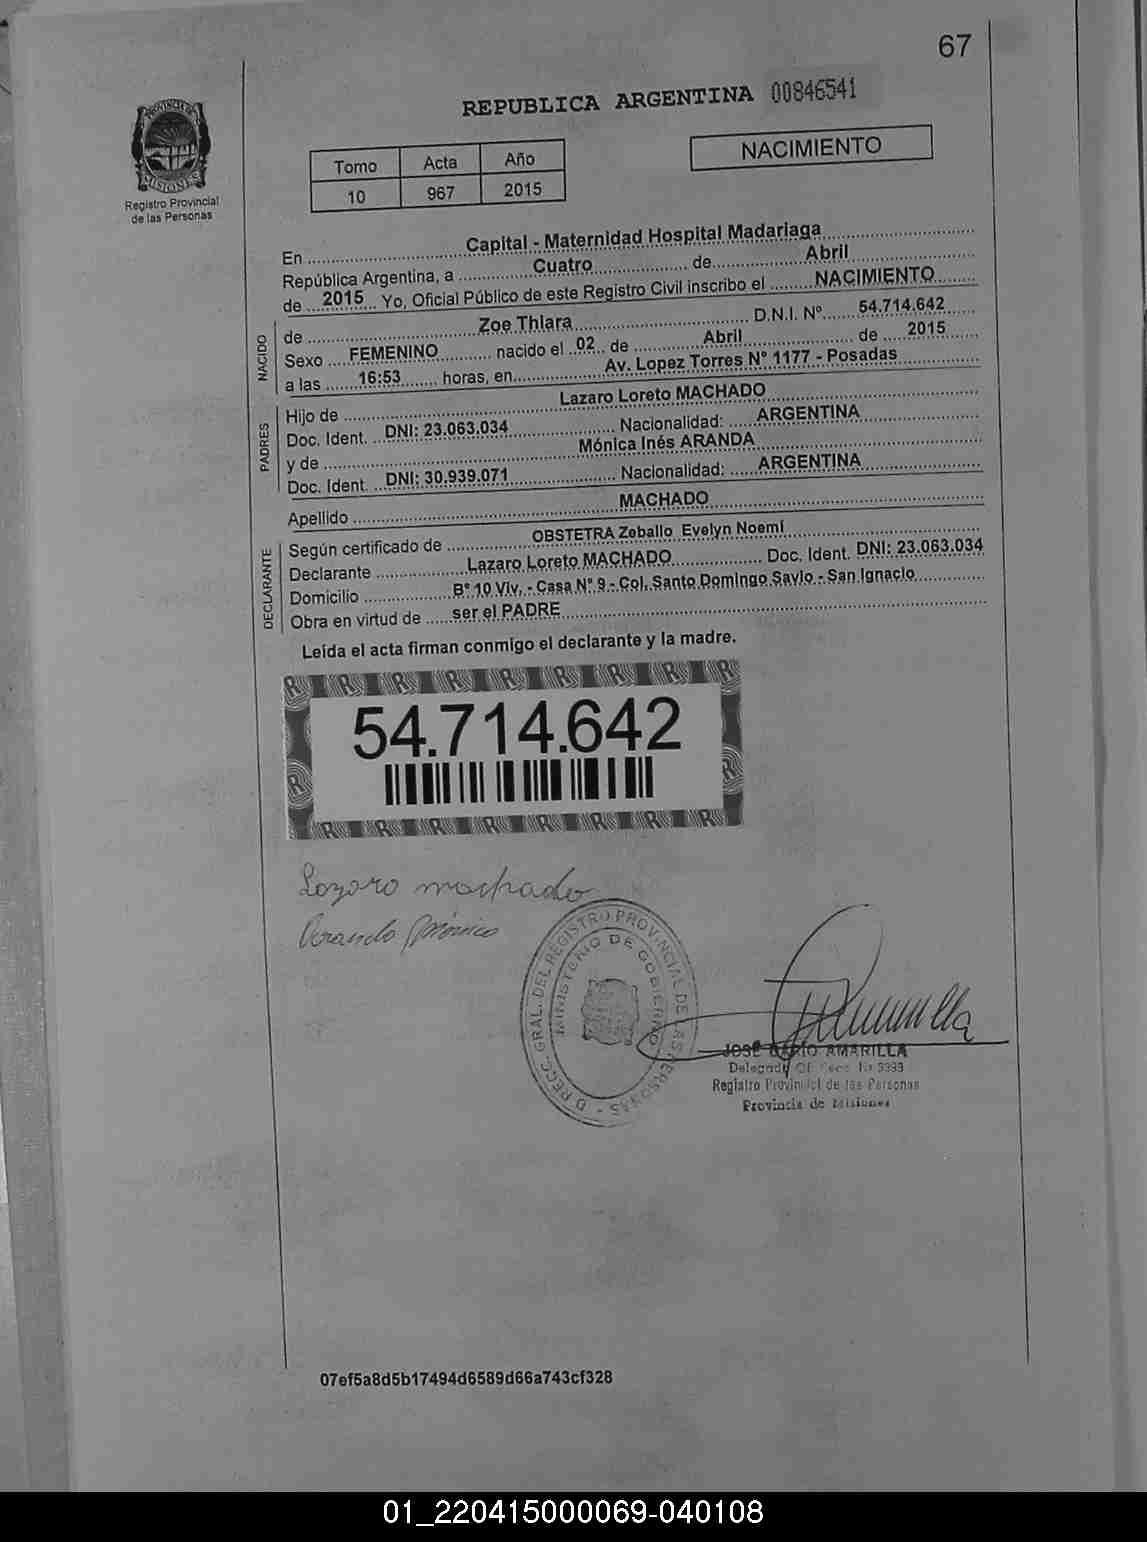 67
REPUBLICA ARGENTINA 00846541
PROVINCIA DE
MISIONES
Registro Provincial
de las Personas
Tomo Acta Año
10 967 2015
NACIMIENTO
En Capital - Maternidad Hospital Madariaga
República Argentina, a Cuatro de Abril
de 2015 Yo, Oficial Público de este Registro Civil inscribo el NACIMIENTO
NACIDO
de Zoe Thiara D.N.I. Nº 54.714.642
Sexo FEMENINO nacido el 02 de Abril de 2015
a las 16:53 horas, en Av. Lopez Torres Nº 1177 - Posadas
PADRES
Hijo de Lazaro Loreto MACHADO
Doc. Ident. DNI: 23.063.034 Nacionalidad: ARGENTINA
y de Mónica Inés ARANDA
Doc. Ident. DNI: 30.939.071 Nacionalidad: ARGENTINA
Apellido MACHADO
DECLARANTE
Según certificado de OBSTETRA Zeballo Evelyn Noemí
Declarante Lazaro Loreto MACHADO Doc. Ident. DNI: 23.063.034
Domicilio Bº 10 Viv, - Casa Nº 9 - Col. Santo Domingo Savio - San Ignacio
Obra en virtud de ser el PADRE
Leída el acta firman conmigo el declarante y la madre.
54.714.642
Lazaro machado
Aranda Mónica
DIRECC. GRAL. DEL REGISTRO PROVINCIAL DE LAS PERSONAS
MINISTERIO DE GOBIERNO
JOSÉ DARÍO AMARILLA
Registro Provincial de las Personas
Provincia de Misiones
07ef5a8d5b17494d6589d66a743cf328
01_220415000069-040108